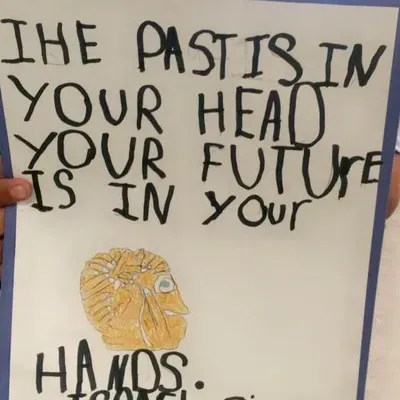 THE PAST IS IN
YOUR HEAD
YOUR FUTUrE
IS IN your
HANDS.